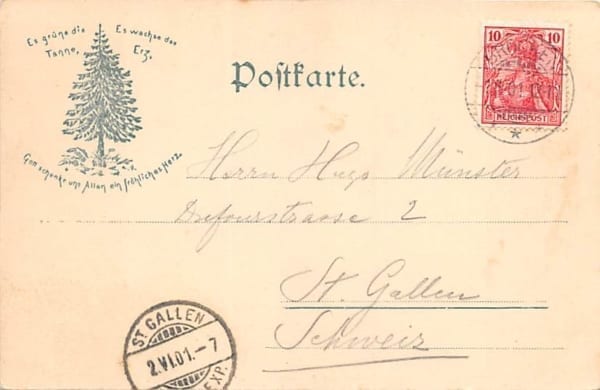 Es grüne die Tanne,
Es wachse das Erz,
Gott schenke uns Allen ein fröhliches Herz
Postkarte.
10 10
REICHSPOST
Herrn Hugo Münster
Dufourstrasse 2
St. Gallen
Schweiz
ST GALLEN
2.VI.01.-7
EXP.